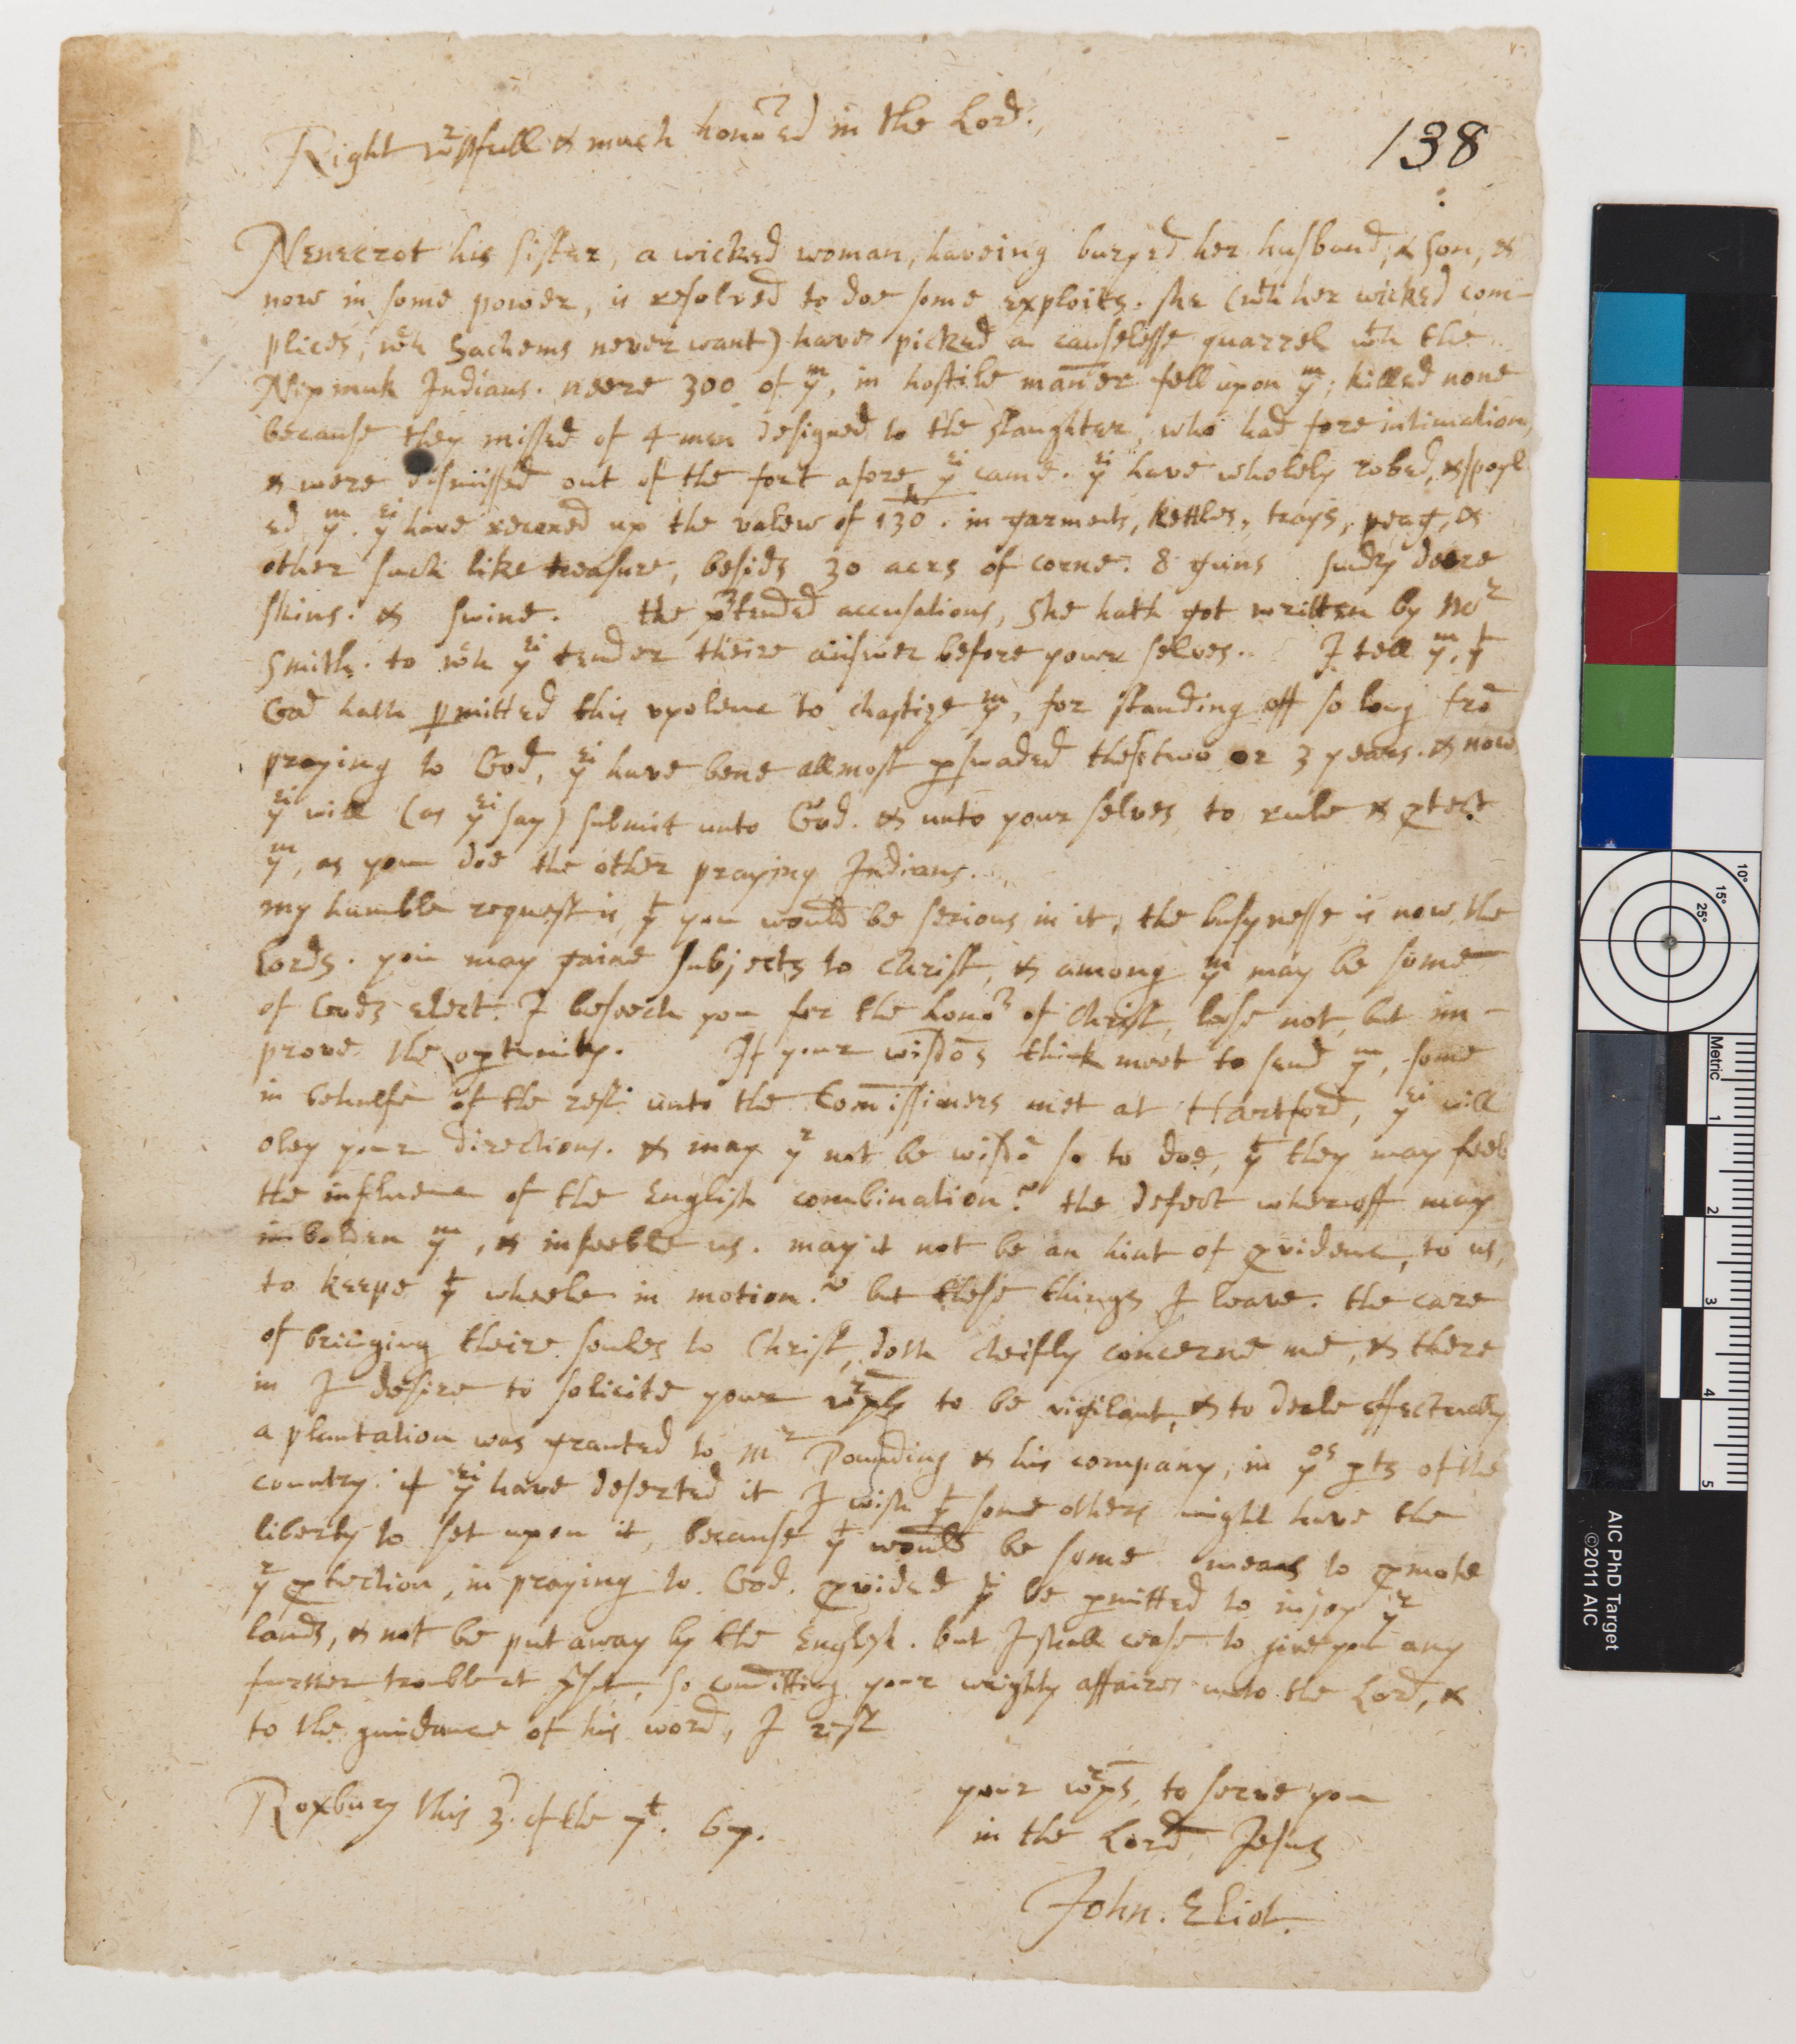 138
Right wrpfull & much honored in the Lord.,
Nenecrot his sister, a wicked woman, haveing buryed her husband, & son, &
now in some power, is resolved to doe some exploits. she (wth her wicked com-
plices, wch Sachems never want) have picked a causelesse quarrel wth the
Nipmuk Indians. neere 300 of ym, in hostile maner fell upon ym; killed none
because they missed of 4 men designed to the slaughter, who had fore intimation,
& were dismissed out of the fort afore yei came. yei have wholely robed, & spoyl
ed ym. yei have up the valew of 130. in garments, kettles, trays, peag, &
other such like treasure, besids 30 acrs of corne. 8 guns sundry deere
skins. & swine. the prtended accusations, she hath got written by Mr
Smith. to wch yei tender theire answer before your selves. I tell ym, yt
God hath pmitted this vyolenc to chastize ym, for standing off so long fro
praying to God, yei have bene allmost pswaded these two or 3 years. & now
yei will (as yei say) submit unto God. & unto your selves to rule & ptect
ym, as you doe the other praying Indians.
my humble request is, yt you would be serious in it, the busynesse is now the
Lords. you may gaine subjects to Christ, & among ym may be some
of Gods elect. I beseech you for the honor of Christ, lose not, but im-
prove the optunity. If your wisdos think meet to send ym, some
in behalfe of the rest unto the Comissiners met at Hartford, yei will
obey your directions. & may yr not be wisdo so to doe, yt they may feele
the influenc of the English combination? the defect whereoff may
imbolden ym, & infeeble us. may it not be an hint of pvidenc, to us,
to keepe yt wheele in motion? but these things I leave. the care
of bringing theire soules to Christ, doth cheifly concerne me, & there
in I desire to solicite your wrps to be vigilant, & to deale effectually
a plantation was granted to mr Pounding & his company, in yos pts of the
country. if yei have deserted it I wish yt some others might have the
liberty to set upon it, because yt would be some means to pmote
yr ptection, in praying to God. pvided yei be pmitted to injoy yr
lands, & not be put away by the English. but I shall cease to give you any
further trouble at psnt, so comitting your weighty affaires unto the Lord, &
to the guidance of his word, I rest
your wrps, to serve you
Roxbury this 3. of the 7t. 67.
in the Lord Jesus
John. Eliot.
Metric 1 2 3 4 5
10° 15° 25°
AIC PhD Target
©2011 AIC